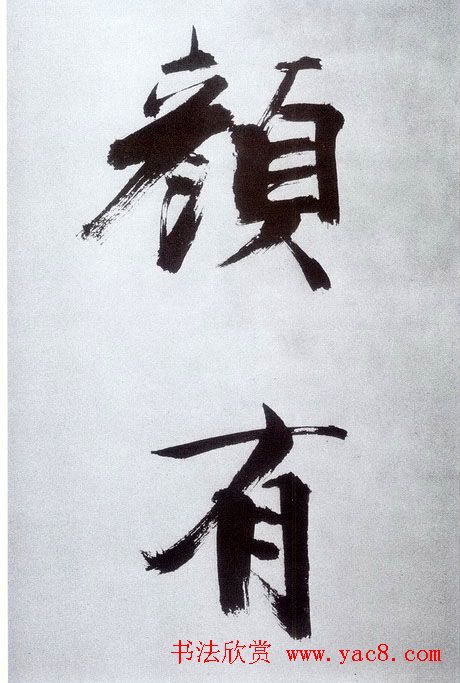 顔有
书法欣赏 www.yac8.com